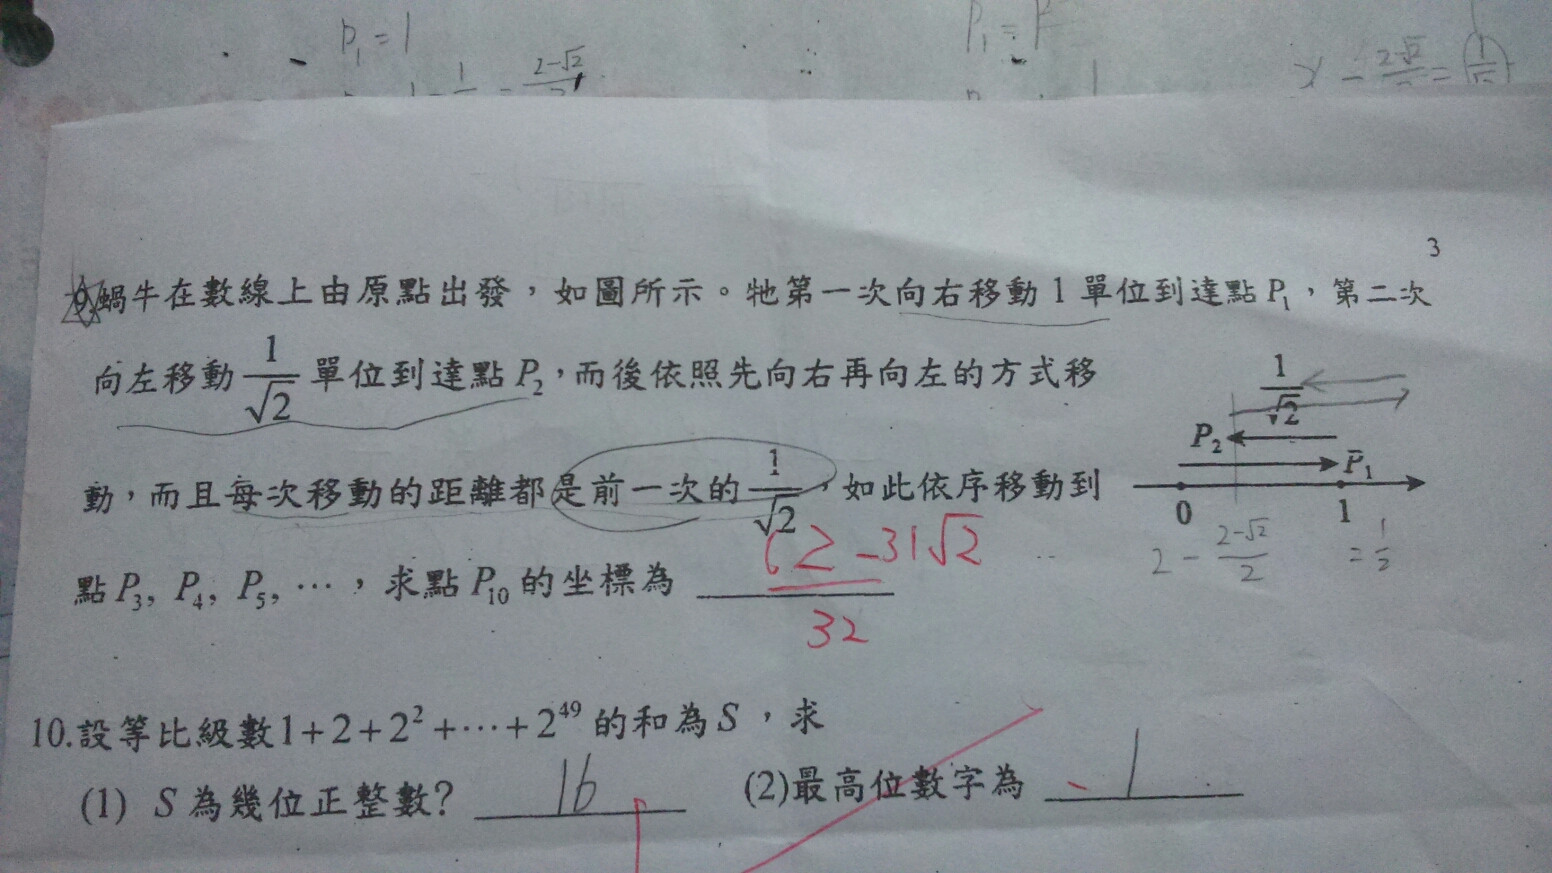 P₁ = 1
P₁ =
2-√2
3
9.蝸牛在數線上由原點出發，如圖所示。牠第一次向右移動1單位到達點P₁，第二次
向左移動 1/√2 單位到達點P₂，而後依照先向右再向左的方式移
動，而且每次移動的距離都是前一次的 1/√2，如此依序移動到
點P₃, P₄, P₅, ⋯，求點P₁₀的坐標為 (62-31√2)/32
1/√2
P₂ P₁
0 1
2 - (2-√2)/2
= 1/2
10.設等比級數1+2+2²+⋯+2⁴⁹的和為S，求
(1) S為幾位正整數? 16 (2)最高位數字為 1